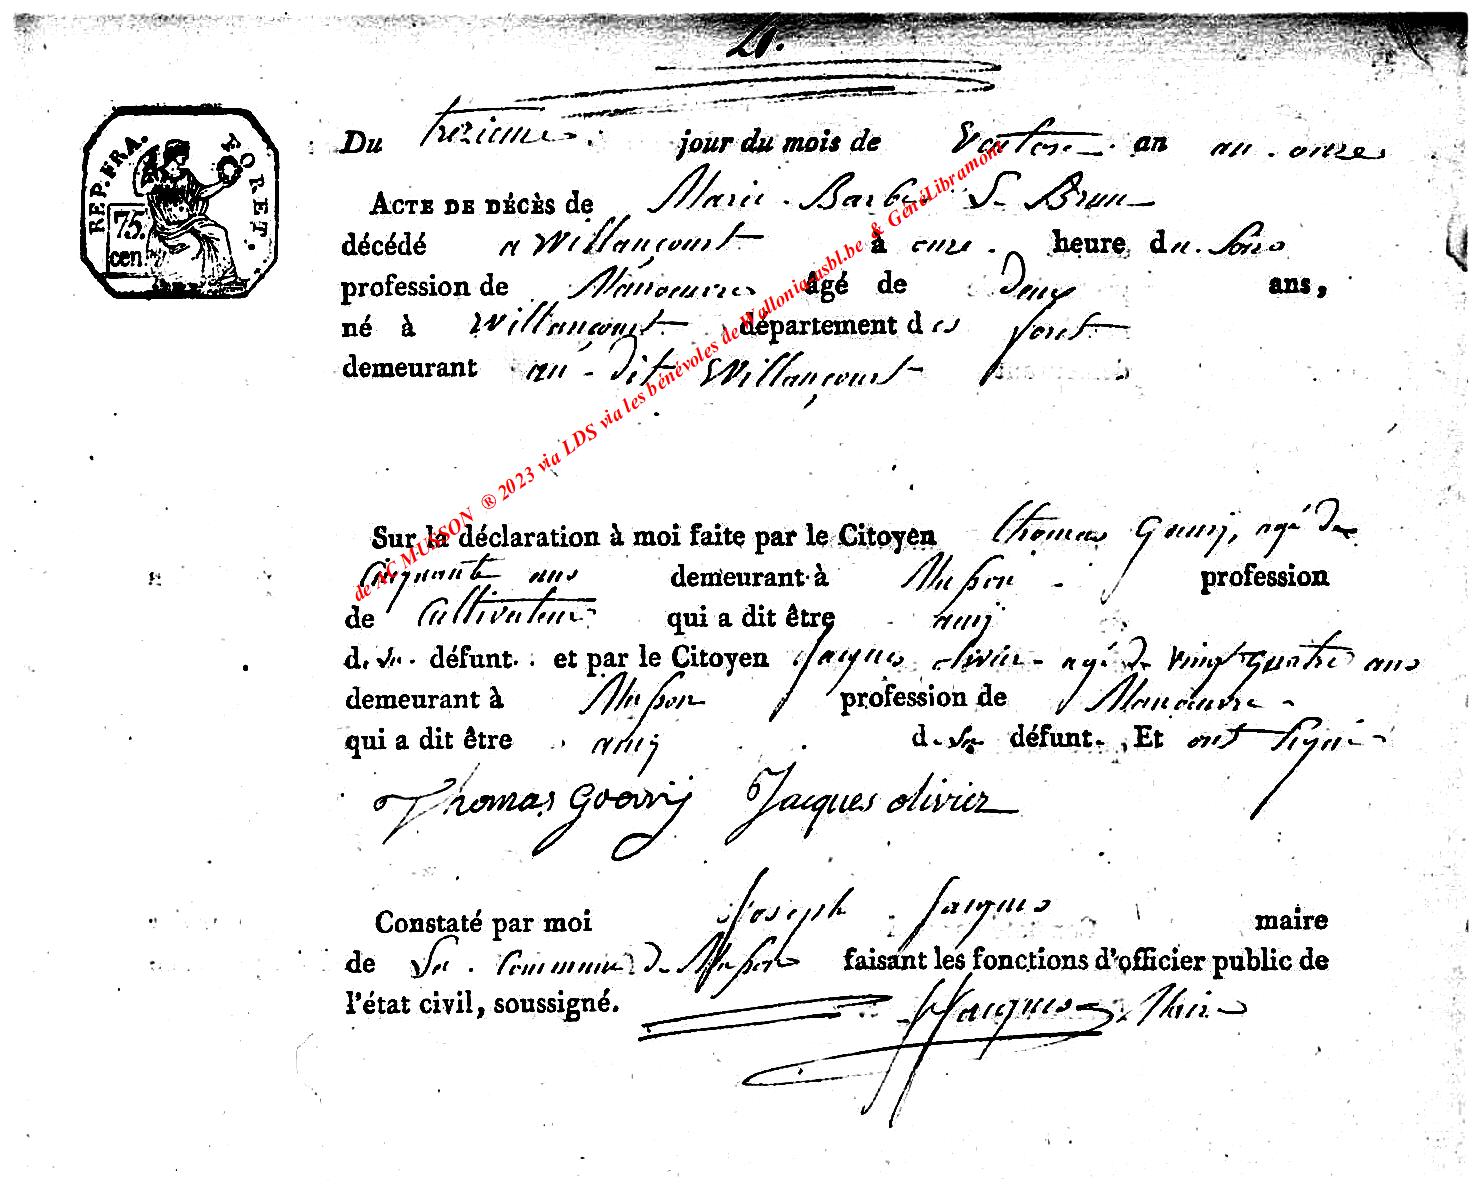 4.
REP. FRA. FORET.
75.
cen.
Du trezieme jour du mois de Ventose an an onze
ACTE DE DÉCÈS de Marie Barbe Le Brun
décédé a Willancourt à onze heure du soir
profession de Manoeuvre âgé de Deux ans,
né à Willancourt département des foret
demeurant au dit Willancourt
Sur la déclaration à moi faite par le Citoyen thomas Gouvij, agé de
Cinquante ans demeurant à Musson profession
de Cultivateur qui a dit être amij
d. la défunt. et par le Citoyen Jacques olivier agé de vingt quatre ans
demeurant à Musson profession de Manoeuvre
qui a dit être amij d. la défunt. Et ont signé
Thomas Goovij Jacques olivier
Constaté par moi Joseph Jacques maire
de la Commune de Musson faisant les fonctions d'officier public de
l'état civil, soussigné.
Jacques Maire
de AC MUSSON ® 2023 via LDS via les bénévoles de Wallonia asbl.be & GénéLibramont